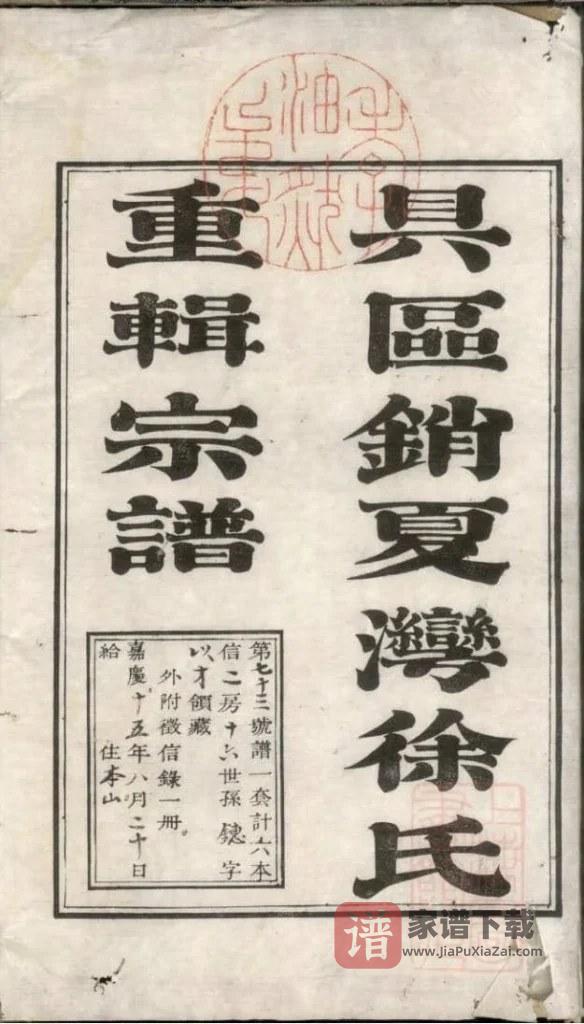 具區銷夏灣徐氏
重輯宗譜
第七十三號譜一套計六本
信二房十六世孫鏓字
以才領藏
外附徵信錄一冊
嘉慶十五年八月二十日
給 住本山
谱
家谱下载
www.JiaPuXiaZai.com